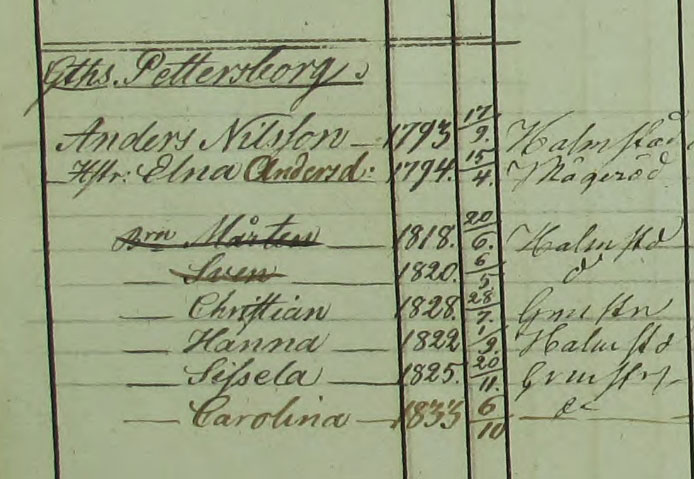 Gths. Pettersborg
Anders Nilsson 1793 17/9. Halmstad
Hstr: Elna Andersd: 1794. 15/4. Mågeröd
Brn Mårten 1818. 20/6. Halmstd
Sven 1820. 6/5 do
Christian 1828. 28/7. Grmstn
Hanna 1822 1/9. Halmstd
Sissela 1825. 20/11. Grmstn
Carolina 1833 6/10 do